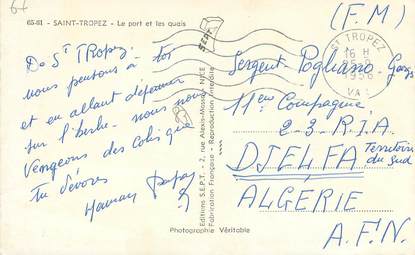 65-81 - SAINT-TROPEZ - Le port et les quais
De St Tropez
nous pensons à toi
et en allant déjeuner
sur l'herbe - nous nous
vengeons des colis que
Tu dévores
Maman
Editions S.E.P.T. - 2, rue Alexis-Mossa, NICE
Fabrication Française - Reproduction Interdite
SEPT
Photographie Véritable
(F.M)
ST TROPEZ
16 H
1956
VAR
Sergent Pogliano
11ème Compagnie
2-3. R.I.A
DJELFA Territoire du Sud
ALGÉRIE
A.F.N.